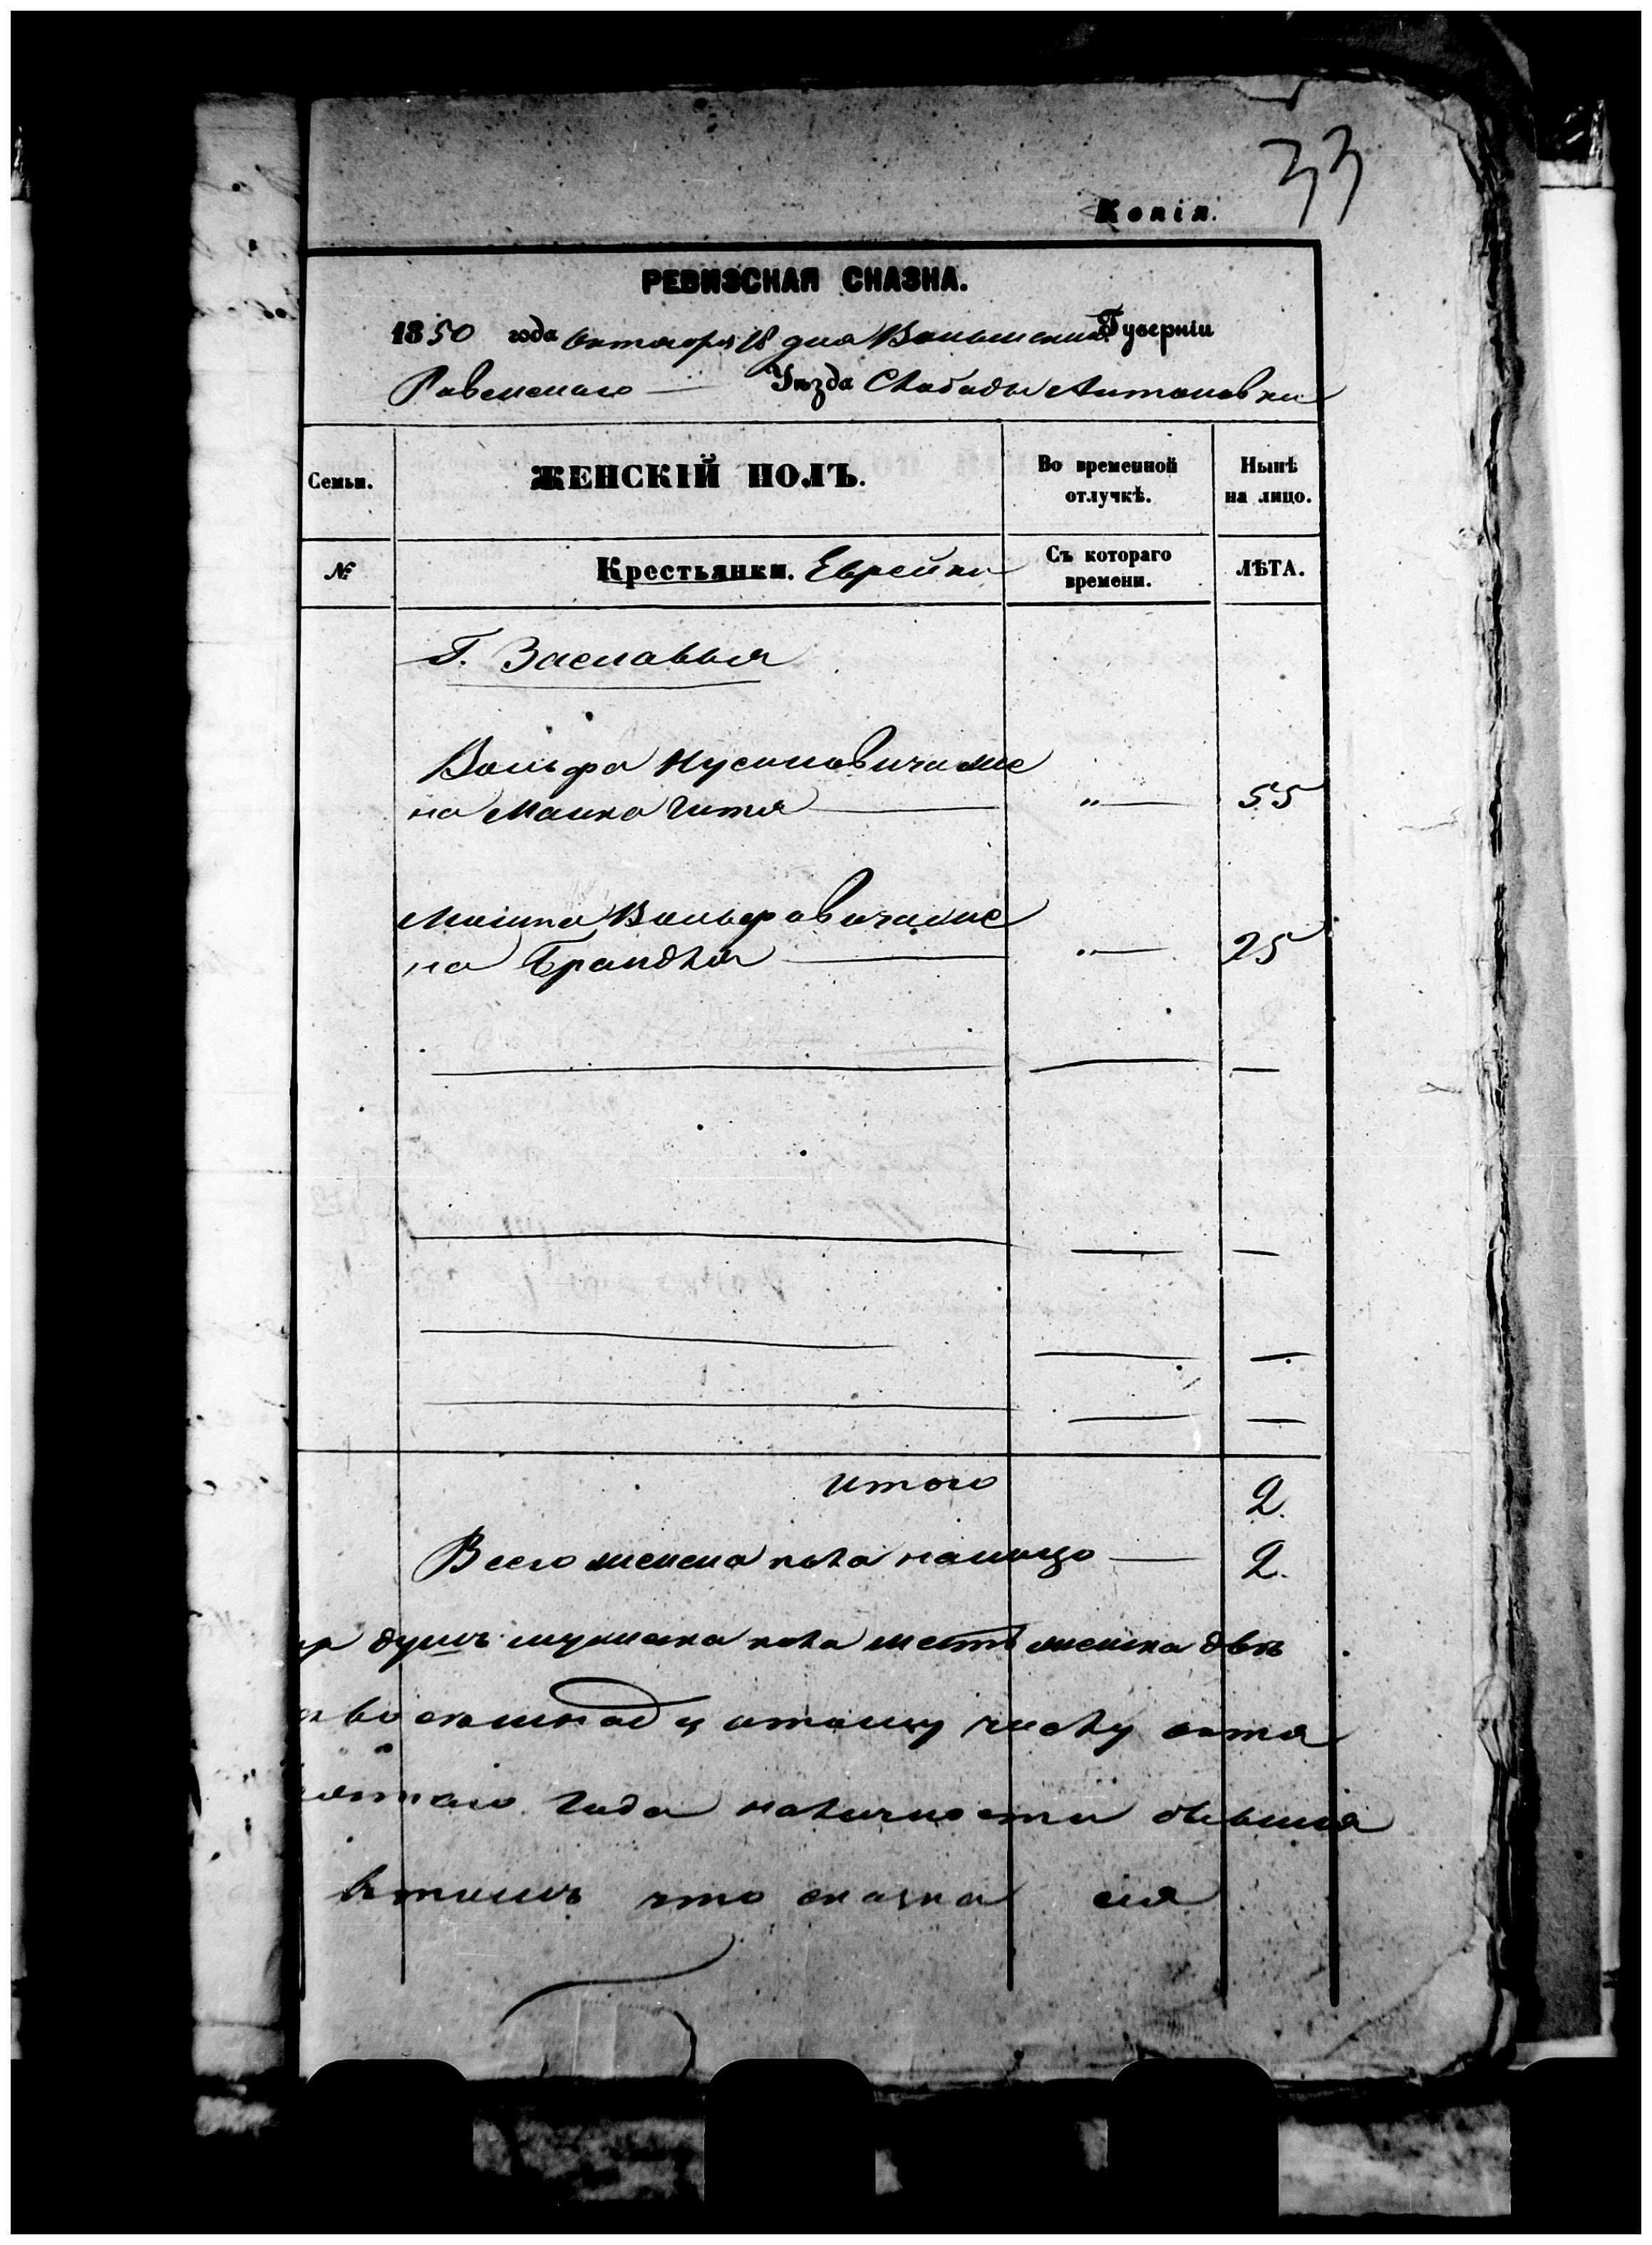 33
Копія.
РЕВИЗСКАЯ СКАЗКА.
1850 года октября 18 дня Волынской Губерніи
Ровенскаго Уѣзда Слободы Антоновки
Семьи.
ЖЕНСКІЙ ПОЛЪ.
Во временной
отлучкѣ.
Нынѣ
на лицо.
№
Крестьянки. Еврейки
Съ котораго
времени.
ЛѢТА.
Г. Заславля
Вольфа Нусиновича же
на Малка Гитля " 55
Мошка Вольфовича же
на Брандля " 25
Итого 2.
Всего женска пола налицо 2.
душъ мужска пола шесть женска двѣ
восемнадцатому числу октя
года наличности бывшія
въ томъ что сказка сія